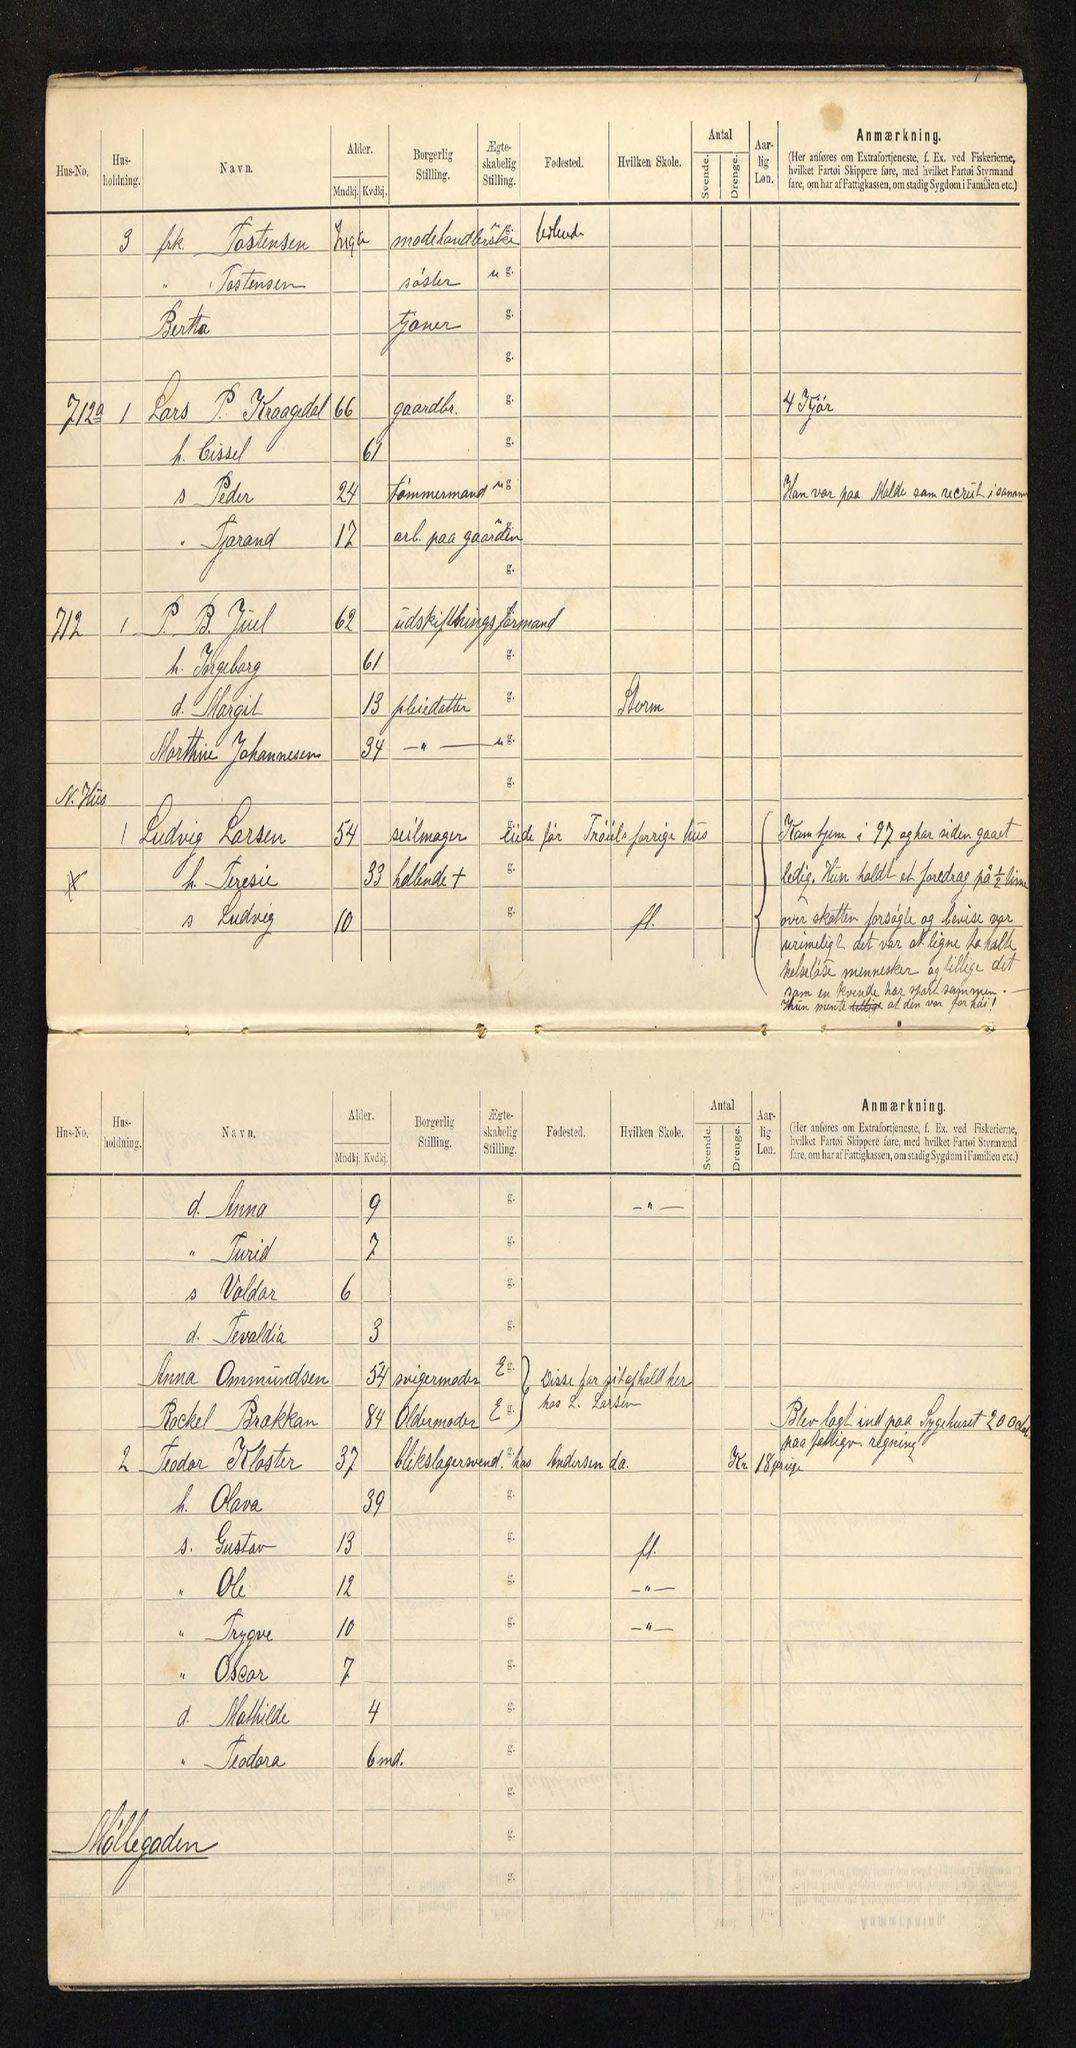 Hus-No. Hus-holdning. Navn. Alder. Mndkj. Kvdkj. Borgerlig Stilling. Ægte-skabelig Stilling. Fødested. Hvilken Skole. Antal Svende. Drenge. Aar-lig Løn. Anmærkning.
(Her anføres om Extrafortjeneste, f. Ex. ved Fiskerierne, hvilket Fartøi Skippere føre, med hvilket Fartøi Styrmænd fare, om har af Fattigkassen, om stadig Sygdom i Familien etc.)
3 frk Tostensen modehandlerske u g.
" Tostensen søster u g.
Bertha tjener g.
g.
712a 1 Lars P. Kraagedal 66 gaardbr. g. 4 Kjør
h. Cissel 61 g.
s Peder 24 tømmermand u g Han var paa Molde som recrut i sommer
" Tjorand 17 arb. paa gaarden g.
g.
712 1 P. B. Juel 62 udskiftningsformand
h. Ingeborg 61 g.
d. Margit 13 pleiedatter g. Storm
Marthine Johannesen 34 —"— u g.
g.
N. Hus
1 Ludvig Larsen 54 seilmager eiede før Trøuls forrige hus Kom hjem i 97 og har siden gaaet
h. Teresie 33 hellende + g. ledig. Hun holdt et foredrag på ½ time
s Ludvig 10 g. fl. over skatten forsøgte og bevise var
urimeligt det var at ligne to halte
helseløse mennesker og tillige det
som en kvende har spart sammen. —
Hun mente tillige at den var for høi!
Hus-No. Hus-holdning. Navn. Alder. Mndkj. Kvdkj. Borgerlig Stilling. Ægte-skabelig Stilling. Fødested. Hvilken Skole. Antal Svende. Drenge. Aar-lig Løn. Anmærkning.
(Her anføres om Extrafortjeneste, f. Ex. ved Fiskerierne, hvilket Fartøi Skippere føre, med hvilket Fartøi Styrmænd fare, om har af Fattigkassen, om stadig Sygdom i Familien etc.)
d. Anna 9 g. —"—
" Turid 7 g.
s Valdar 6 g.
d. Tevaldia 3 g.
Anna Ommundsen 54 svigermoder E g. Disse har sit ophold her
Rackel Brakkan 84 Oldemoder E g. hos L. Larsen Blev lagt ind paa Sygehuset 20 Octob.
paa fattigv. regning
2 Teodor Kloster 37 blikslagersvend. g. hos Andersen da. Kr. 18 pr uge
h. Olava 39 g.
s. Gustav 13 g. fl.
" Ole 12 g. —"—
" Trygve 10 g. —"—
" Oscar 7 g.
d. Mathilde 4 g.
" Teodora 6 md. g.
g.
Møllegaden g.
g.